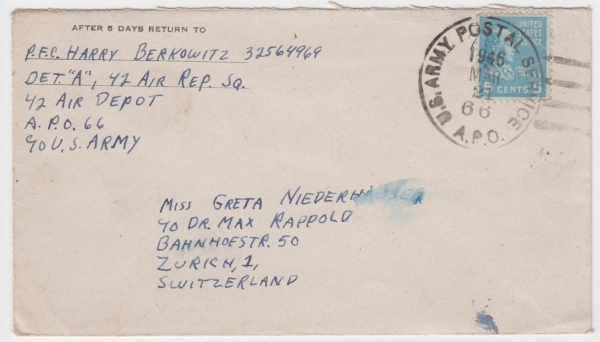 AFTER 5 DAYS RETURN TO
P.F.C. HARRY BERKOWITZ 32564969
DET."A", 42 AIR REP. SQ.
42 AIR DEPOT
A.P.O. 66
℅ U.S. ARMY
U.S. ARMY POSTAL SERVICE
1946
MAR
66
A.P.O.
UNITED
STATES
POSTAGE
5 CENTS 5
MISS GRETA NIEDERHAUSER
℅ DR. MAX RAPPOLD
BAHNHOFSTR. 50
ZURICH, 1,
SWITZERLAND